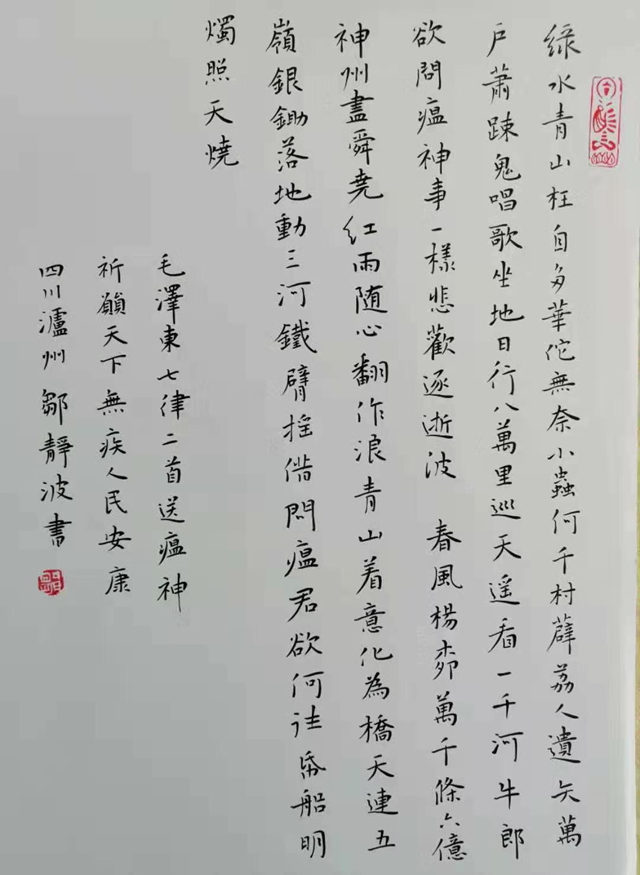 綠水青山枉自多華佗無奈小蟲何千村薜荔人遺矢萬
戶蕭踈鬼唱歌坐地日行八萬里巡天遥看一千河牛郎
欲問瘟神事一樣悲歡逐逝波 春風楊栁萬千條六億
神州盡舜堯紅雨随心翻作浪青山着意化為橋天連五
嶺銀鋤落地動三河鐵臂摇借問瘟君欲何往帋船明
燭照天燒
毛澤東七律二首送瘟神
祈願天下無疾人民安康
四川瀘州鄒靜波書